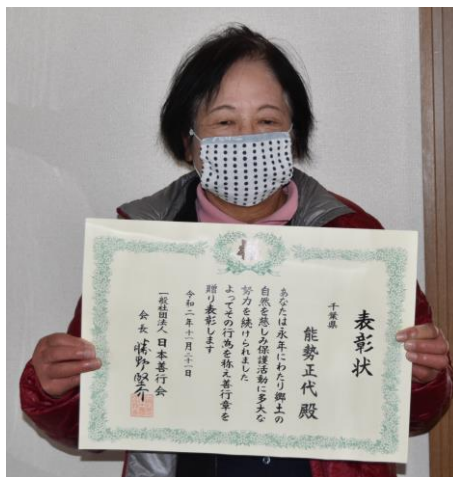 表彰状
千葉県
能勢正代 殿
あなたは永年にわたり郷土の
自然を慈しみ保護活動に多大な
努力を続けられました
よってその行為を称え善行章を
贈り表彰します
令和二年十一月二十一日
一般社団法人 日本善行会
会長 勝野堅介